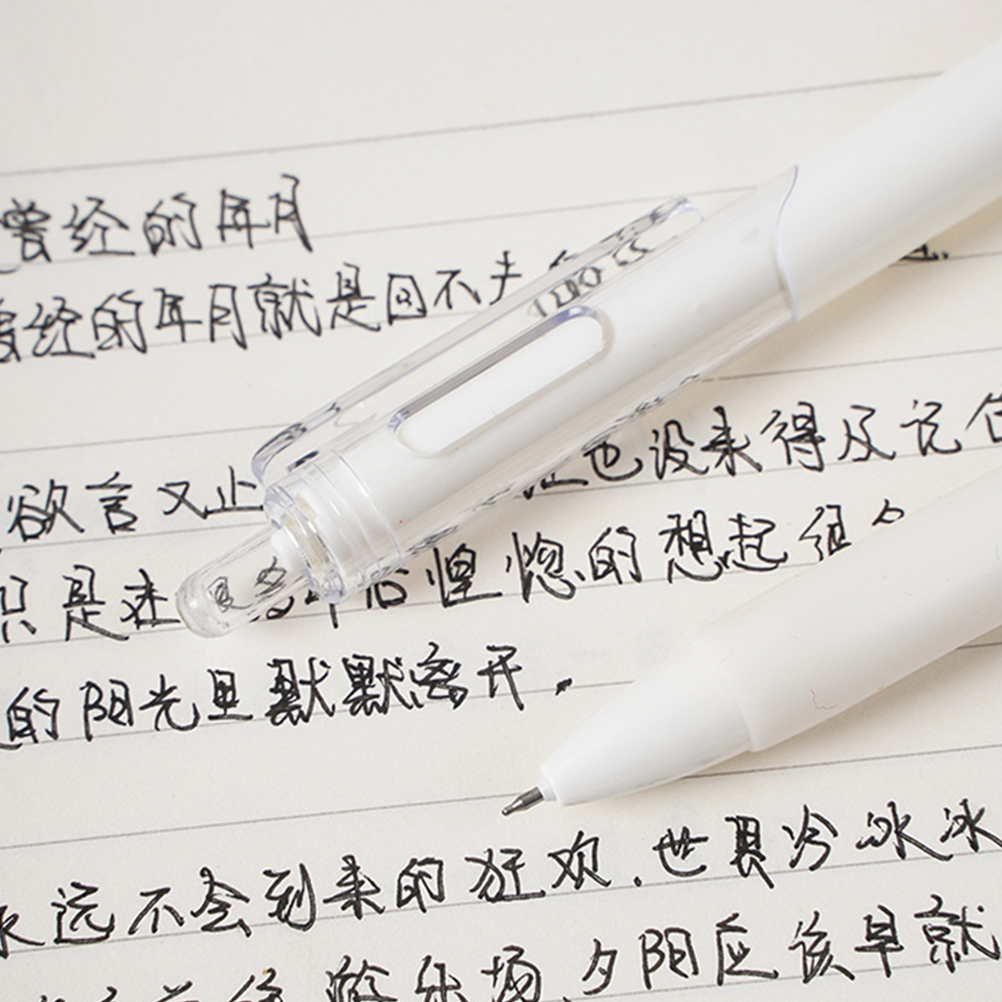 曾经的年月
曾经的年月就是因不
欲言又止 也没来得及记住
只是在 年后惶惚的想起
的阳光里默默离开。
永远不会到来的狂欢.世界冷冰冰
游乐场.夕阳应该早就